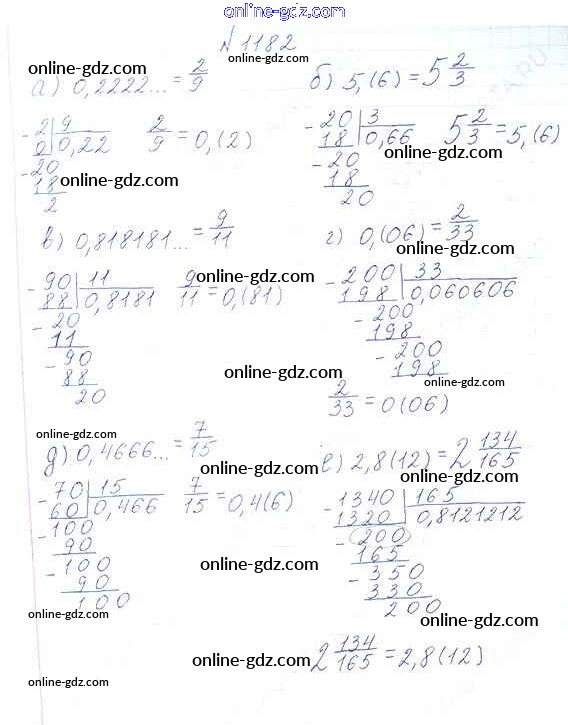 online-gdz.com
N 1182
online-gdz.com
а) 0,2222... = 2/9
б) 5,(6) = 5 2/3
2 | 9
0 | 0,22
2/9 = 0,(2)
20
18
online-gdz.com
2
20 | 3
18 | 0,66
5 2/3 = 5,(6)
online-gdz.com
20
18
20
в) 0,818181... = 9/11
г) 0,(06) = 2/33
online-gdz.com
90 | 11
88 | 0,8181
9/11 = 0,(81)
online-gdz.com
20
11
90
88
20
200 | 33
198 | 0,060606
200
198
200
198
online-gdz.com
online-gdz.com
2/33 = 0(06)
online-gdz.com
д) 0,4666... = 7/15
е) 2,8(12) = 2 134/165
online-gdz.com
70 | 15
60 | 0,466
7/15 = 0,4(6)
100
90
100
90
100
online-gdz.com
1340 | 165
1320 | 0,8121212
online-gdz.com
200
165
350
330
200
online-gdz.com
online-gdz.com
2 134/165 = 2,8(12)
online-gdz.com
online-gdz.com